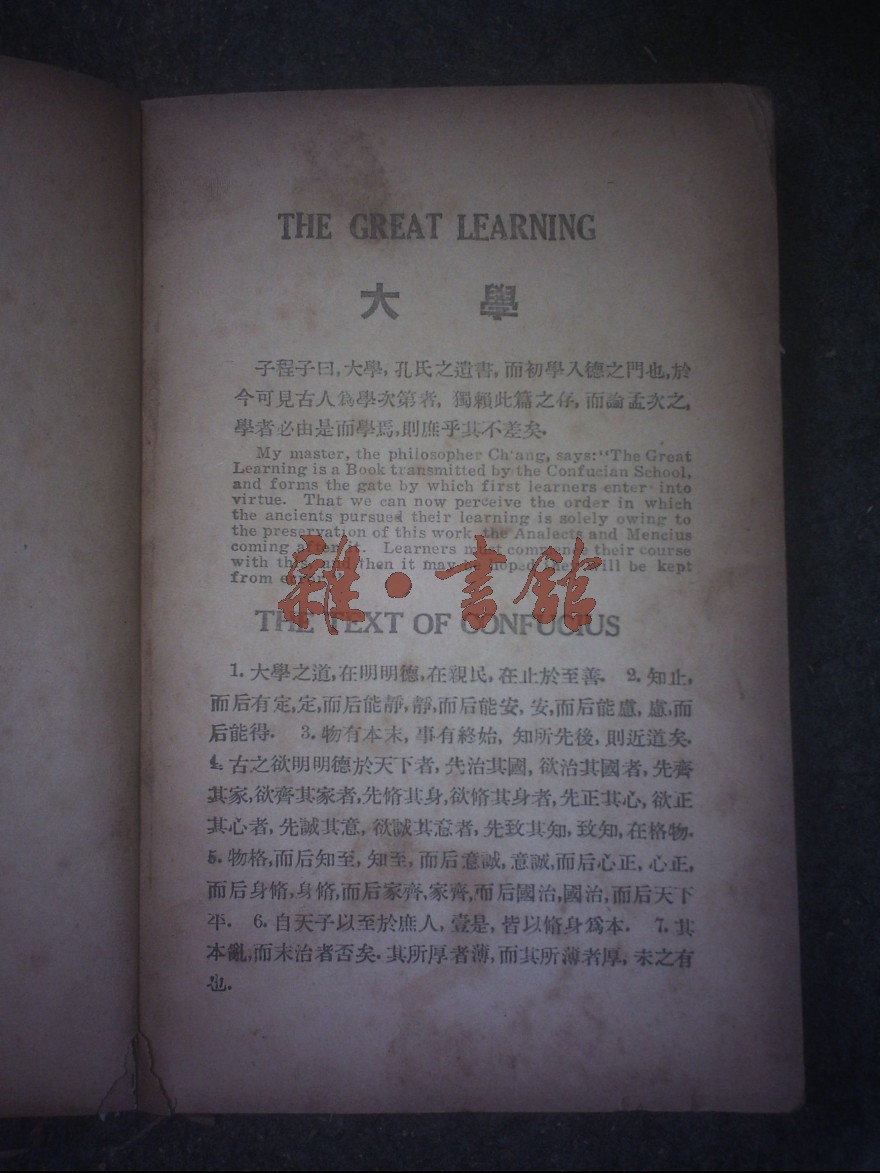 THE GREAT LEARNING
大 學
子程子曰,大學,孔氏之遺書,而初學入德之門也,於
今可見古人爲學次第者,獨賴此篇之存,而論孟次之,
學者必由是而學焉,則庶乎其不差矣.
My master, the philosopher Ch'ang, says: "The Great
Learning is a Book transmitted by the Confucian School,
and forms the gate by which first learners enter into
virtue. That we can now perceive the order in which
the ancients pursued their learning is solely owing to
the preservation of this work, the Analects and Mencius
coming after it. Learners must commence their course
with this, and then it may be hoped they will be kept
from error.
雜·書館
THE TEXT OF CONFUCIUS
1. 大學之道,在明明德,在親民,在止於至善. 2. 知止,
而后有定,定,而后能靜,靜,而后能安,安,而后能慮,慮,而
后能得. 3. 物有本末,事有終始,知所先後,則近道矣.
4. 古之欲明明德於天下者,先治其國,欲治其國者,先齊
其家,欲齊其家者,先脩其身,欲脩其身者,先正其心,欲正
其心者,先誠其意,欲誠其意者,先致其知,致知,在格物.
5. 物格,而后知至,知至,而后意誠,意誠,而后心正,心正,
而后身脩,身脩,而后家齊,家齊,而后國治,國治,而后天下
平. 6. 自天子以至於庶人,壹是,皆以脩身爲本. 7. 其
本亂,而末治者否矣.其所厚者薄,而其所薄者厚,未之有
也.